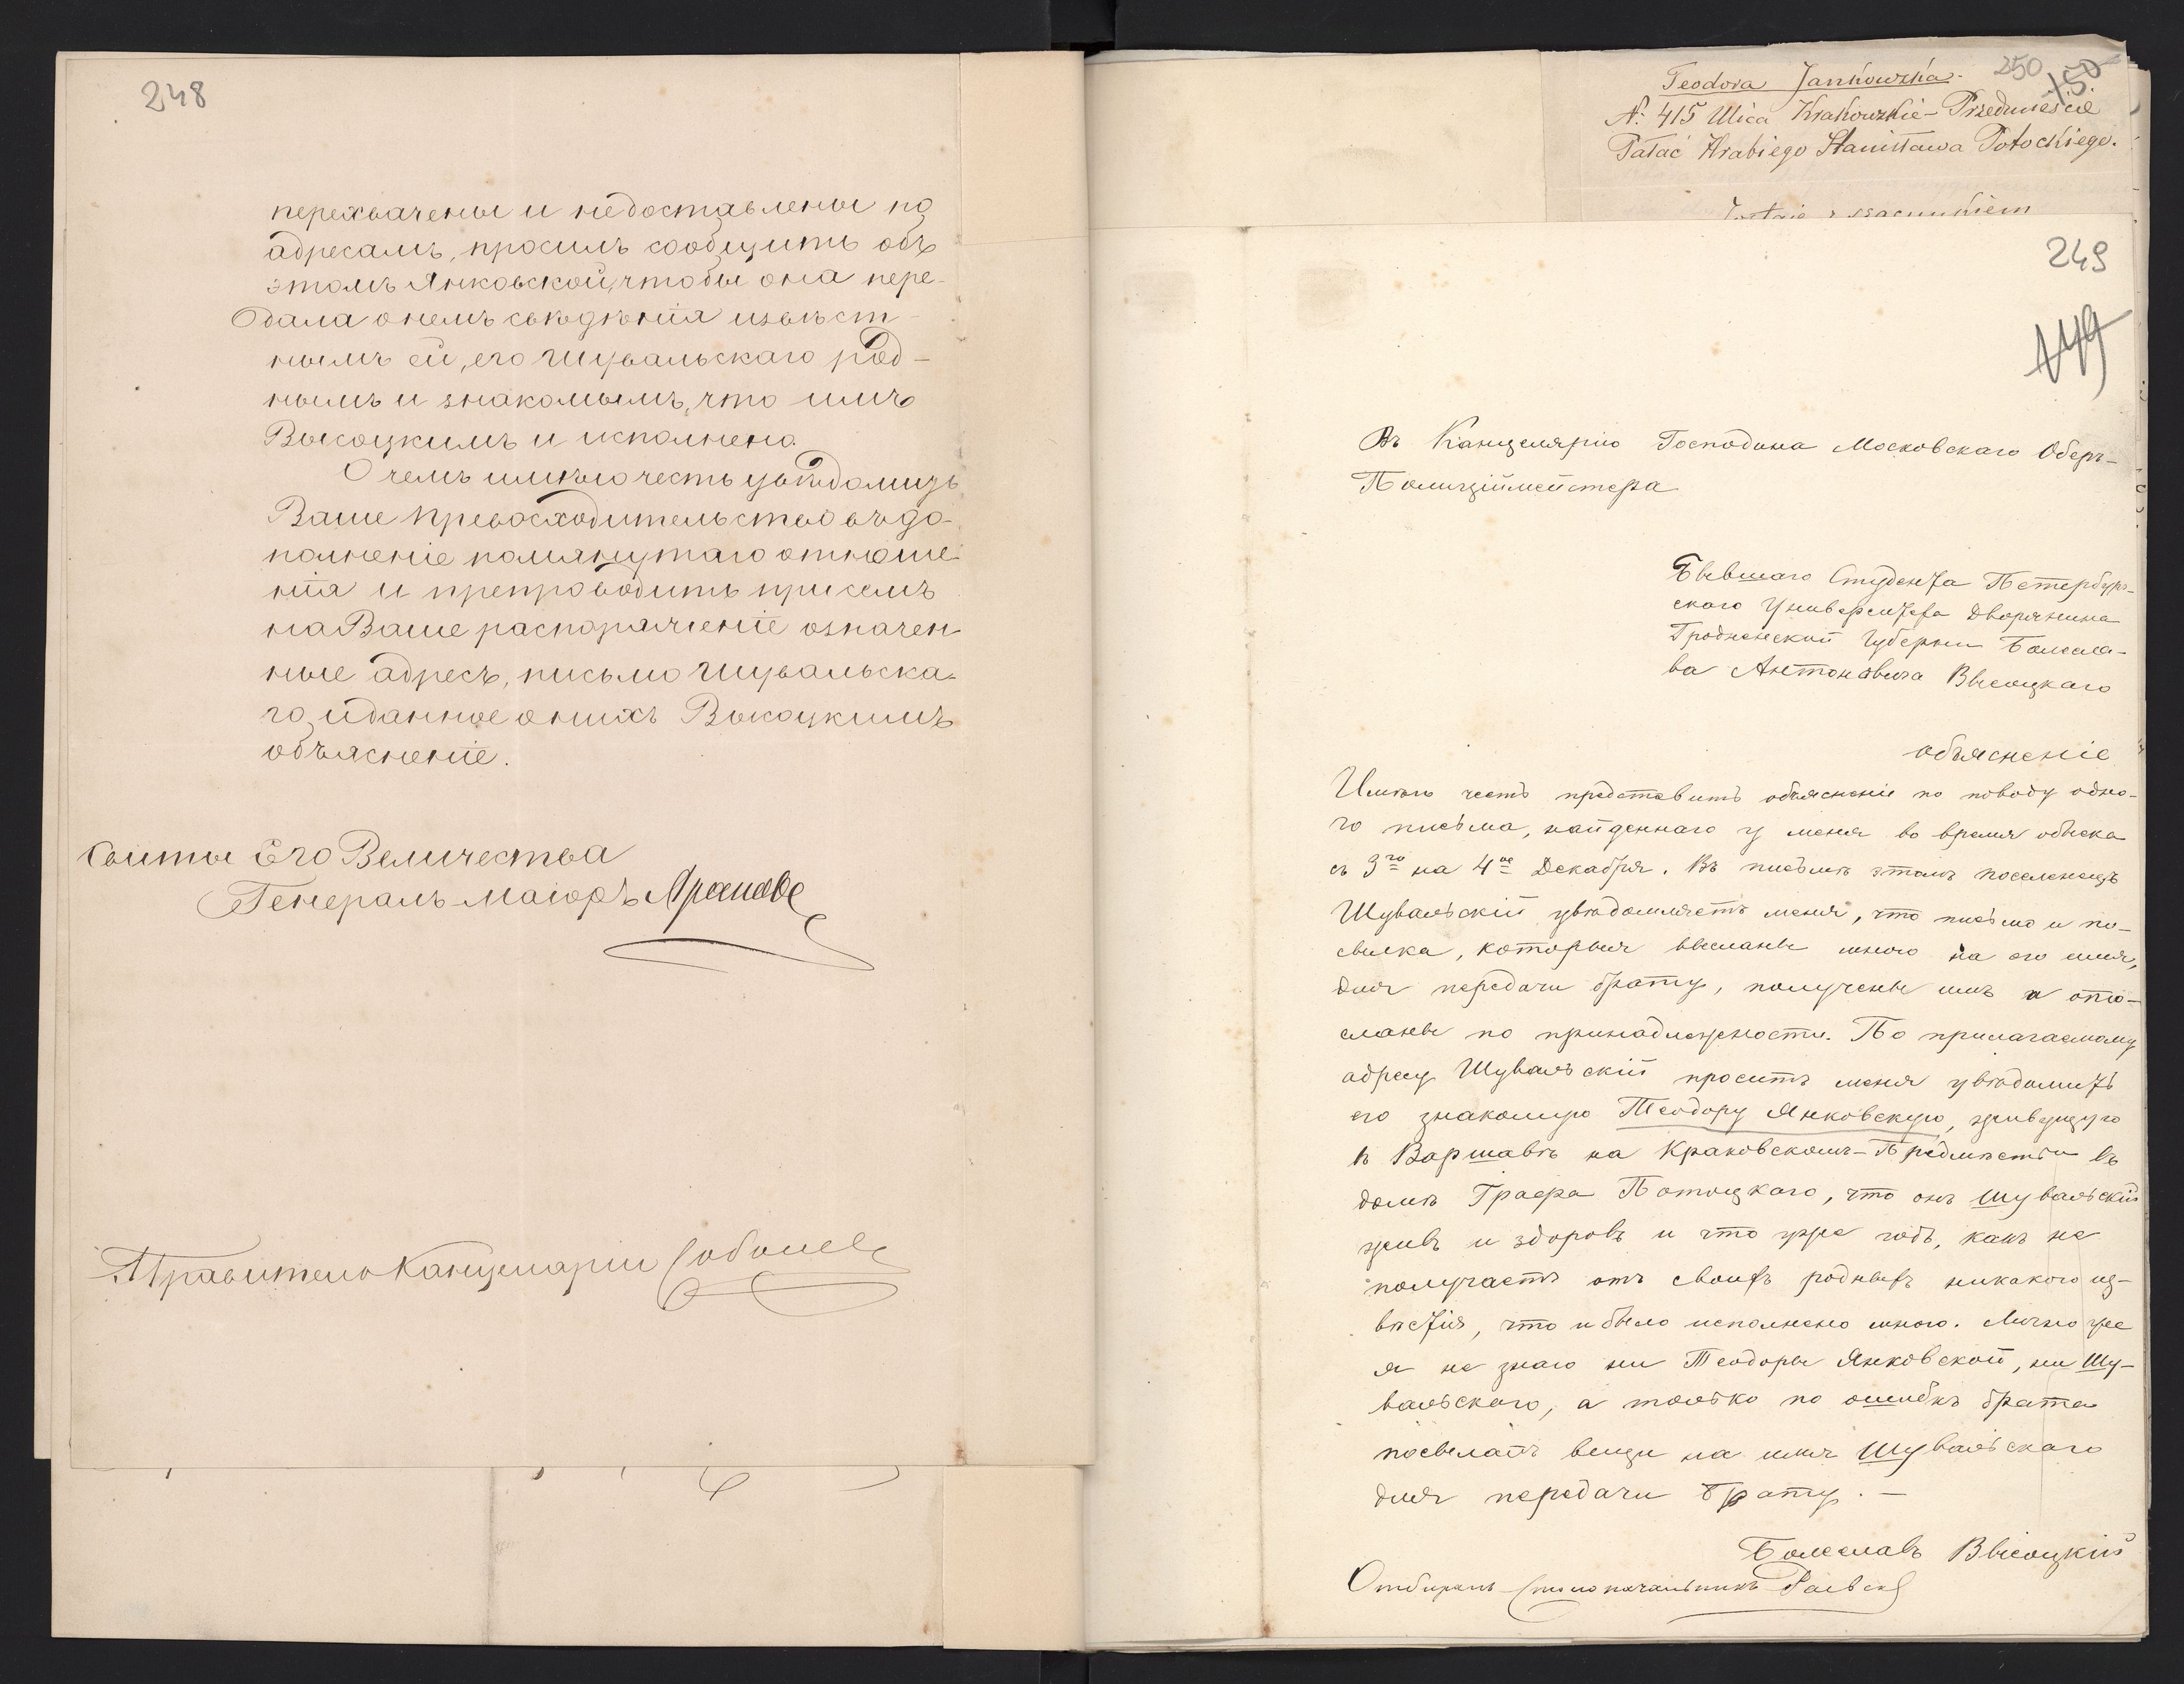 248
перехвачены и недоставлены по
адресамъ, просилъ сообщить объ
этомъ Янковской, чтобы она пере-
дала о немъ свѣдѣнія извѣст-
нымъ ей, его Шувальскаго род-
нымъ и знакомымъ, что имъ
Высоцкимъ и исполнено.
О чемъ имѣю честь увѣдомить
Ваше Превосходительство въ до-
полненіе помянутаго отноше-
нія и препроводить при семъ
на Ваше распоряженіе означен
ные адресъ, письмо Шувальска-
го, и данное о нихъ Высоцкимъ
объясненіе.
Свиты Его Величества
Генералъ-Маіоръ Араповъ
Правитель Канцеляріи
250
150
Teodora Jankowska
N: 415 Ulica Krakowskie-Przedmieście
Pałać Hrabiego Stanisława Potockiego.
249
149
Въ Канцелярію Господина Московскаго Оберъ-
Полиціймейстера
Бывшаго Студента Петербург-
скаго Университета Дворянина
Гродненской Губерніи Болесла-
ва Антоновича Высоцкаго
объясненіе
Имѣю честь представить объясненіе по поводу одно-
го письма, найденнаго у меня во время обыска
съ 3го на 4ое Декабря. Въ письмѣ этомъ поселенецъ
Шувальскій увѣдомляетъ меня, что письмо и по-
сылка, которыя высланы мною на его имя,
для передачи брату, получены имъ и ото-
сланы по принадлежности. По прилагаемому
адресу Шувальскій проситъ меня увѣдомить
его знакомую Теодору Янковскую, живущую
въ Варшавѣ на Краковскомъ-Предмѣстьи въ
домѣ Графа Потоцкаго, что онъ Шувальскій
живъ и здоровъ и что уже годъ, какъ не
получаетъ отъ своихъ родныхъ никакого из-
вѣстія, что и было исполнено мною. Лично же
я не знаю ни Теодоры Янковской, ни Шу-
вальскаго, а только по ошибкѣ брата
посылалъ вещи на имя Шувальскаго
для передачи брату. —
Болеславъ Высоцкій
Отбиралъ Столоначальникъ